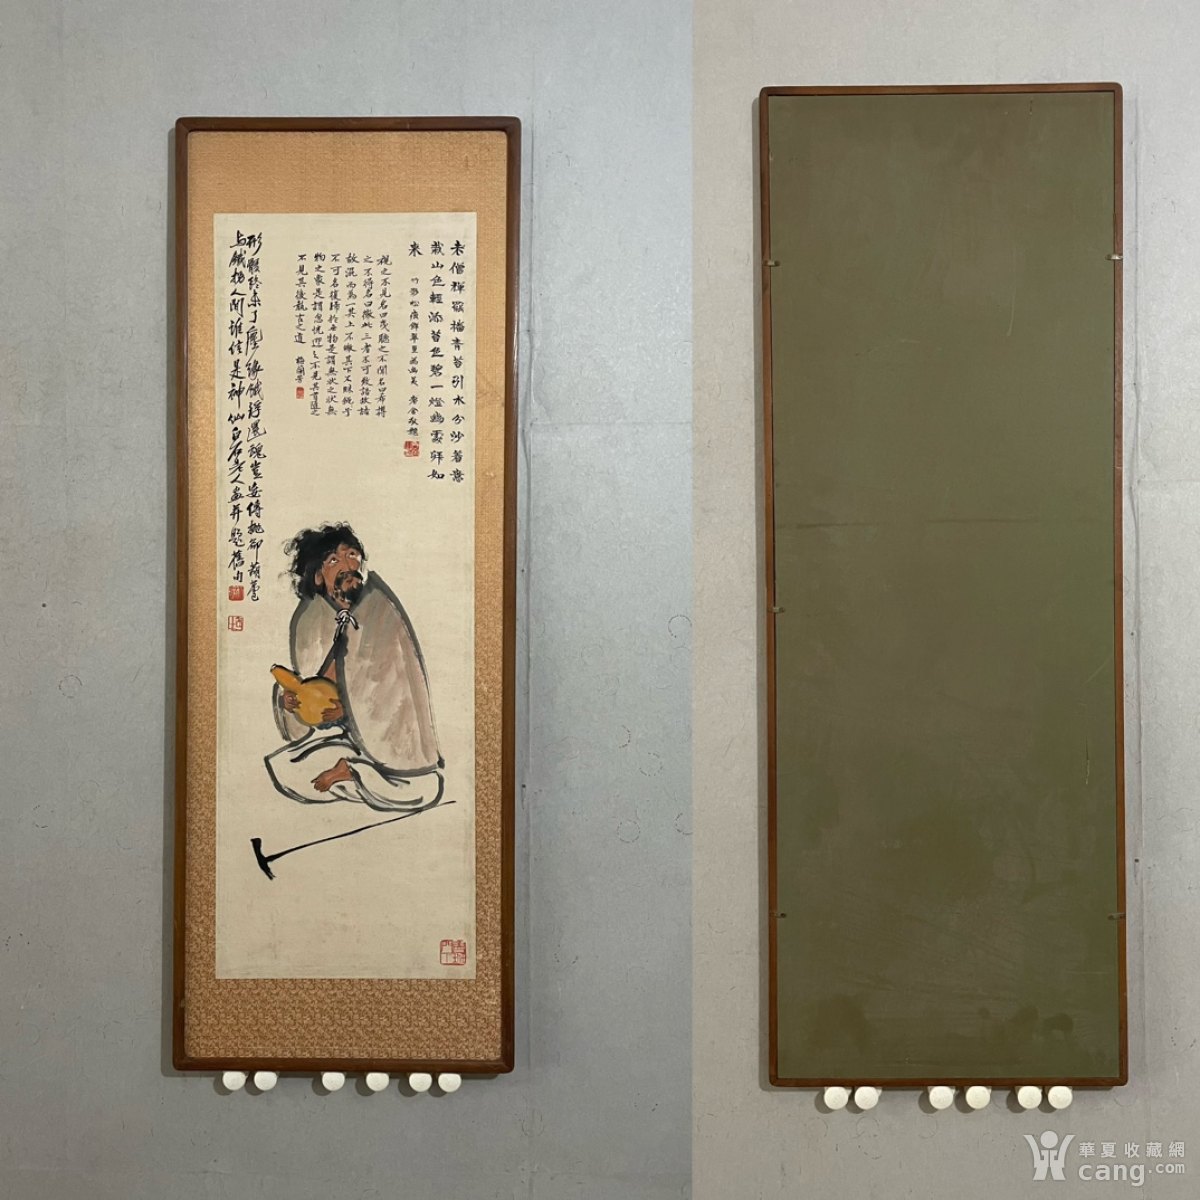 老僧禪寂擋青苔引水分沙著意
栽山色輕添苔色碧一燈幽處拜如
來
視之不見名曰夷聽之不聞名曰希搏
之不得名曰微此三者不可致詰故諸
故混而為一其上不皦其下不昧繩
不可名復歸於無物是謂無狀之狀無
物之象是謂忽恍迎之不見其首隨之
不見其後執古之道 梅蘭芳
形骸終未了塵緣餓殍還魂豈妄傳拋卻葫蘆
與鐵拐人間誰信是神仙白石老人畫并題舊句
華夏收藏網
cang.com